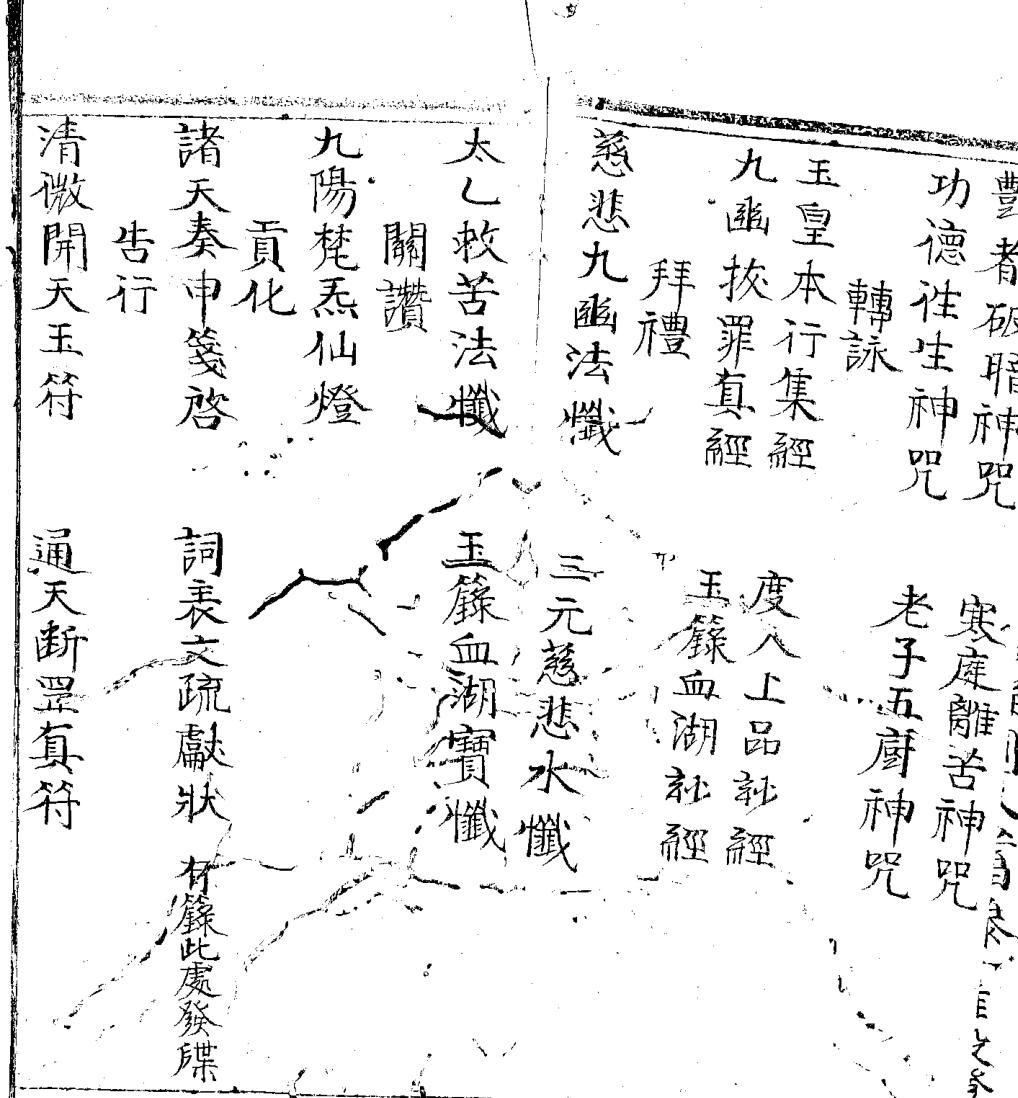 豊者破暗神咒
功德往生神咒
寒庭離苦神咒
老子五厨神咒
轉詠
玉皇本行集經
度人上品玅經
九幽拔罪真經
玉籙血湖玅經
拜禮
慈悲九幽法懺
三元慈悲水懺
太乙救苦法懺
玉籙血湖寶懺
關讚
九陽梵炁仙燈
貢化
諸天奏申箋啓
詞表文疏獻狀
有籙此處發牒
告行
清微開天玉符
通天断罡真符